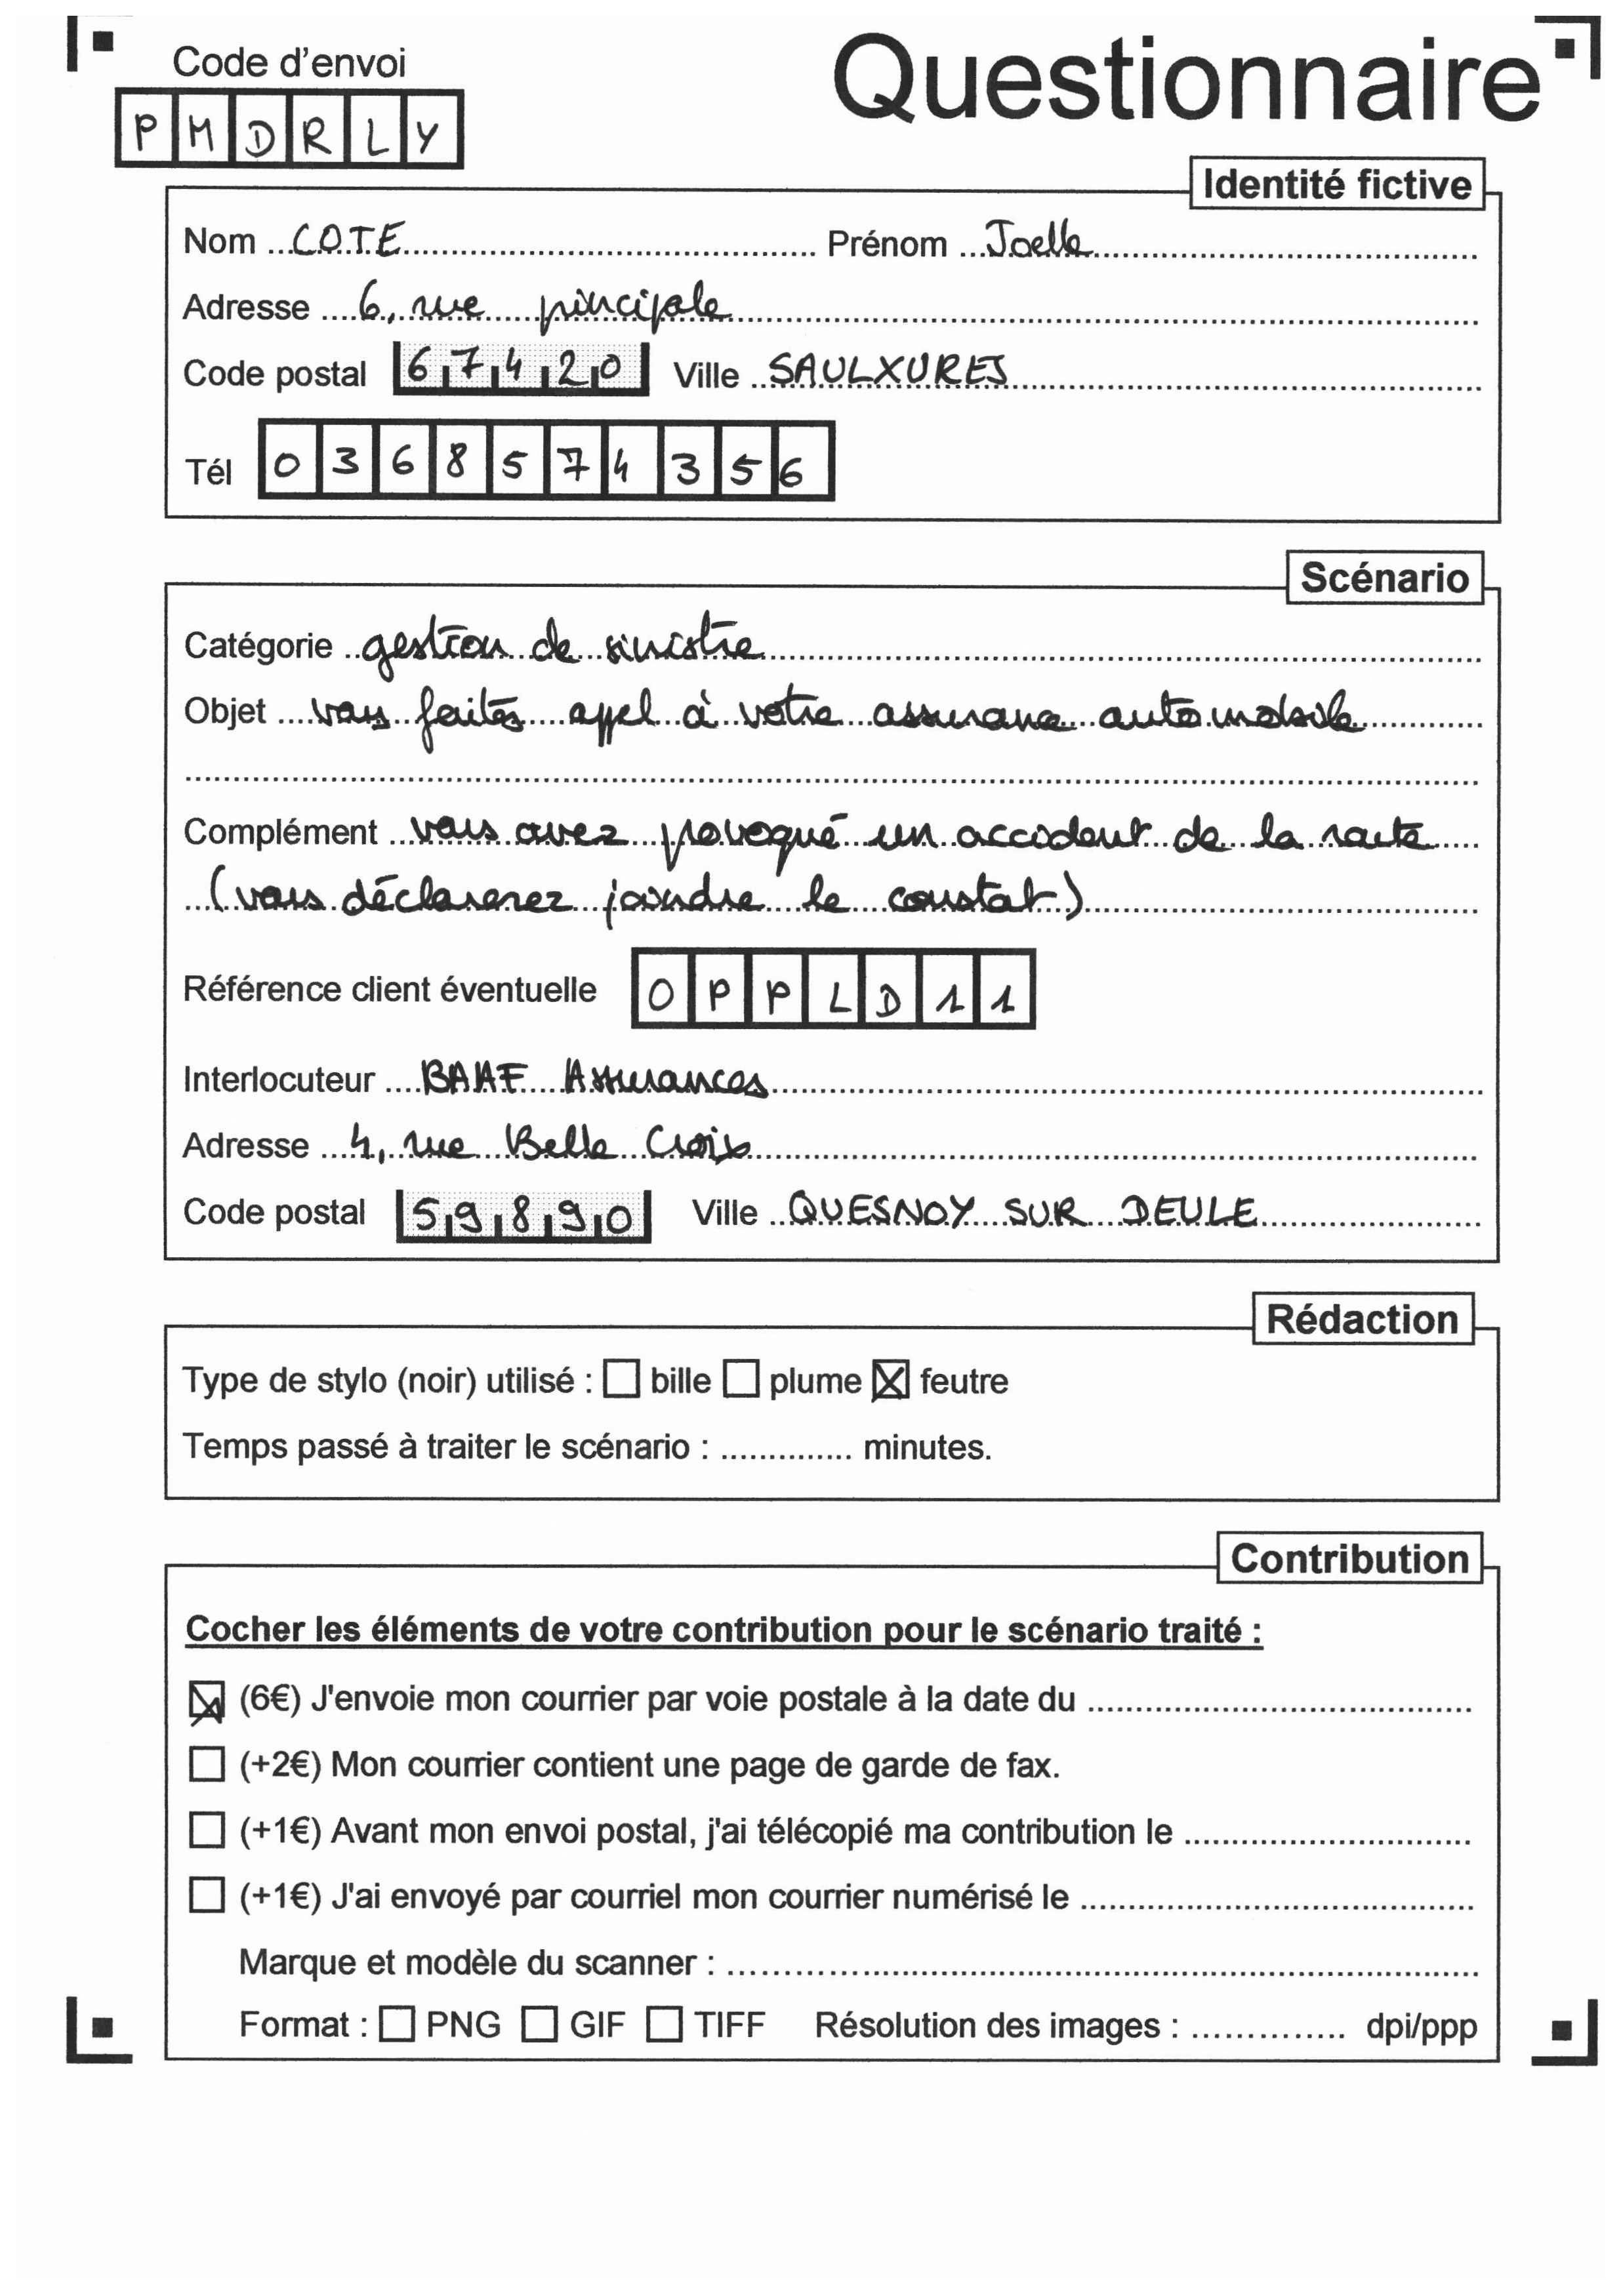 Code d'envoi
PMDRLY
Questionnaire
Identité fictive
Nom COTE Prénom Joelle
Adresse 6, rue principale
Code postal 67420 Ville SAULXURES
Tél 0368574356
Scénario
Catégorie gestion de sinistre
Objet vous faites appel à votre assurance automobile
Complément vous avez provoqué un accident de la route
(vous déclarerez joindre le constat)
Référence client éventuelle OPPLD11
Interlocuteur BAAF Assurances
Adresse 4, rue Belle Croix
Code postal 59890 Ville QUESNOY SUR DEULE
Rédaction
Type de stylo (noir) utilisé : ☐ bille ☐ plume ☒ feutre
Temps passé à traiter le scénario : .............. minutes.
Contribution
Cocher les éléments de votre contribution pour le scénario traité :
☒ (6€) J'envoie mon courrier par voie postale à la date du
☐ (+2€) Mon courrier contient une page de garde de fax.
☐ (+1€) Avant mon envoi postal, j'ai télécopié ma contribution le
☐ (+1€) J'ai envoyé par courriel mon courrier numérisé le
Marque et modèle du scanner :
Format : ☐ PNG ☐ GIF ☐ TIFF Résolution des images : .............. dpi/ppp